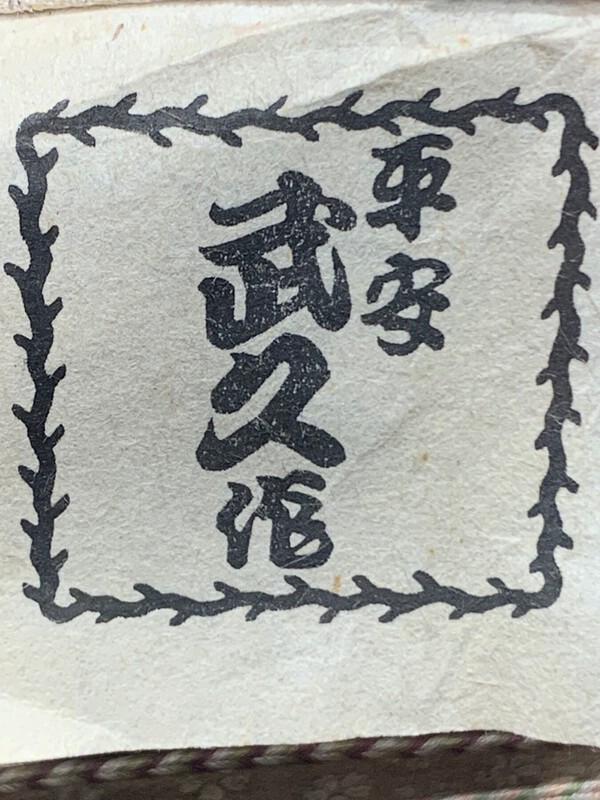 平安
武久作